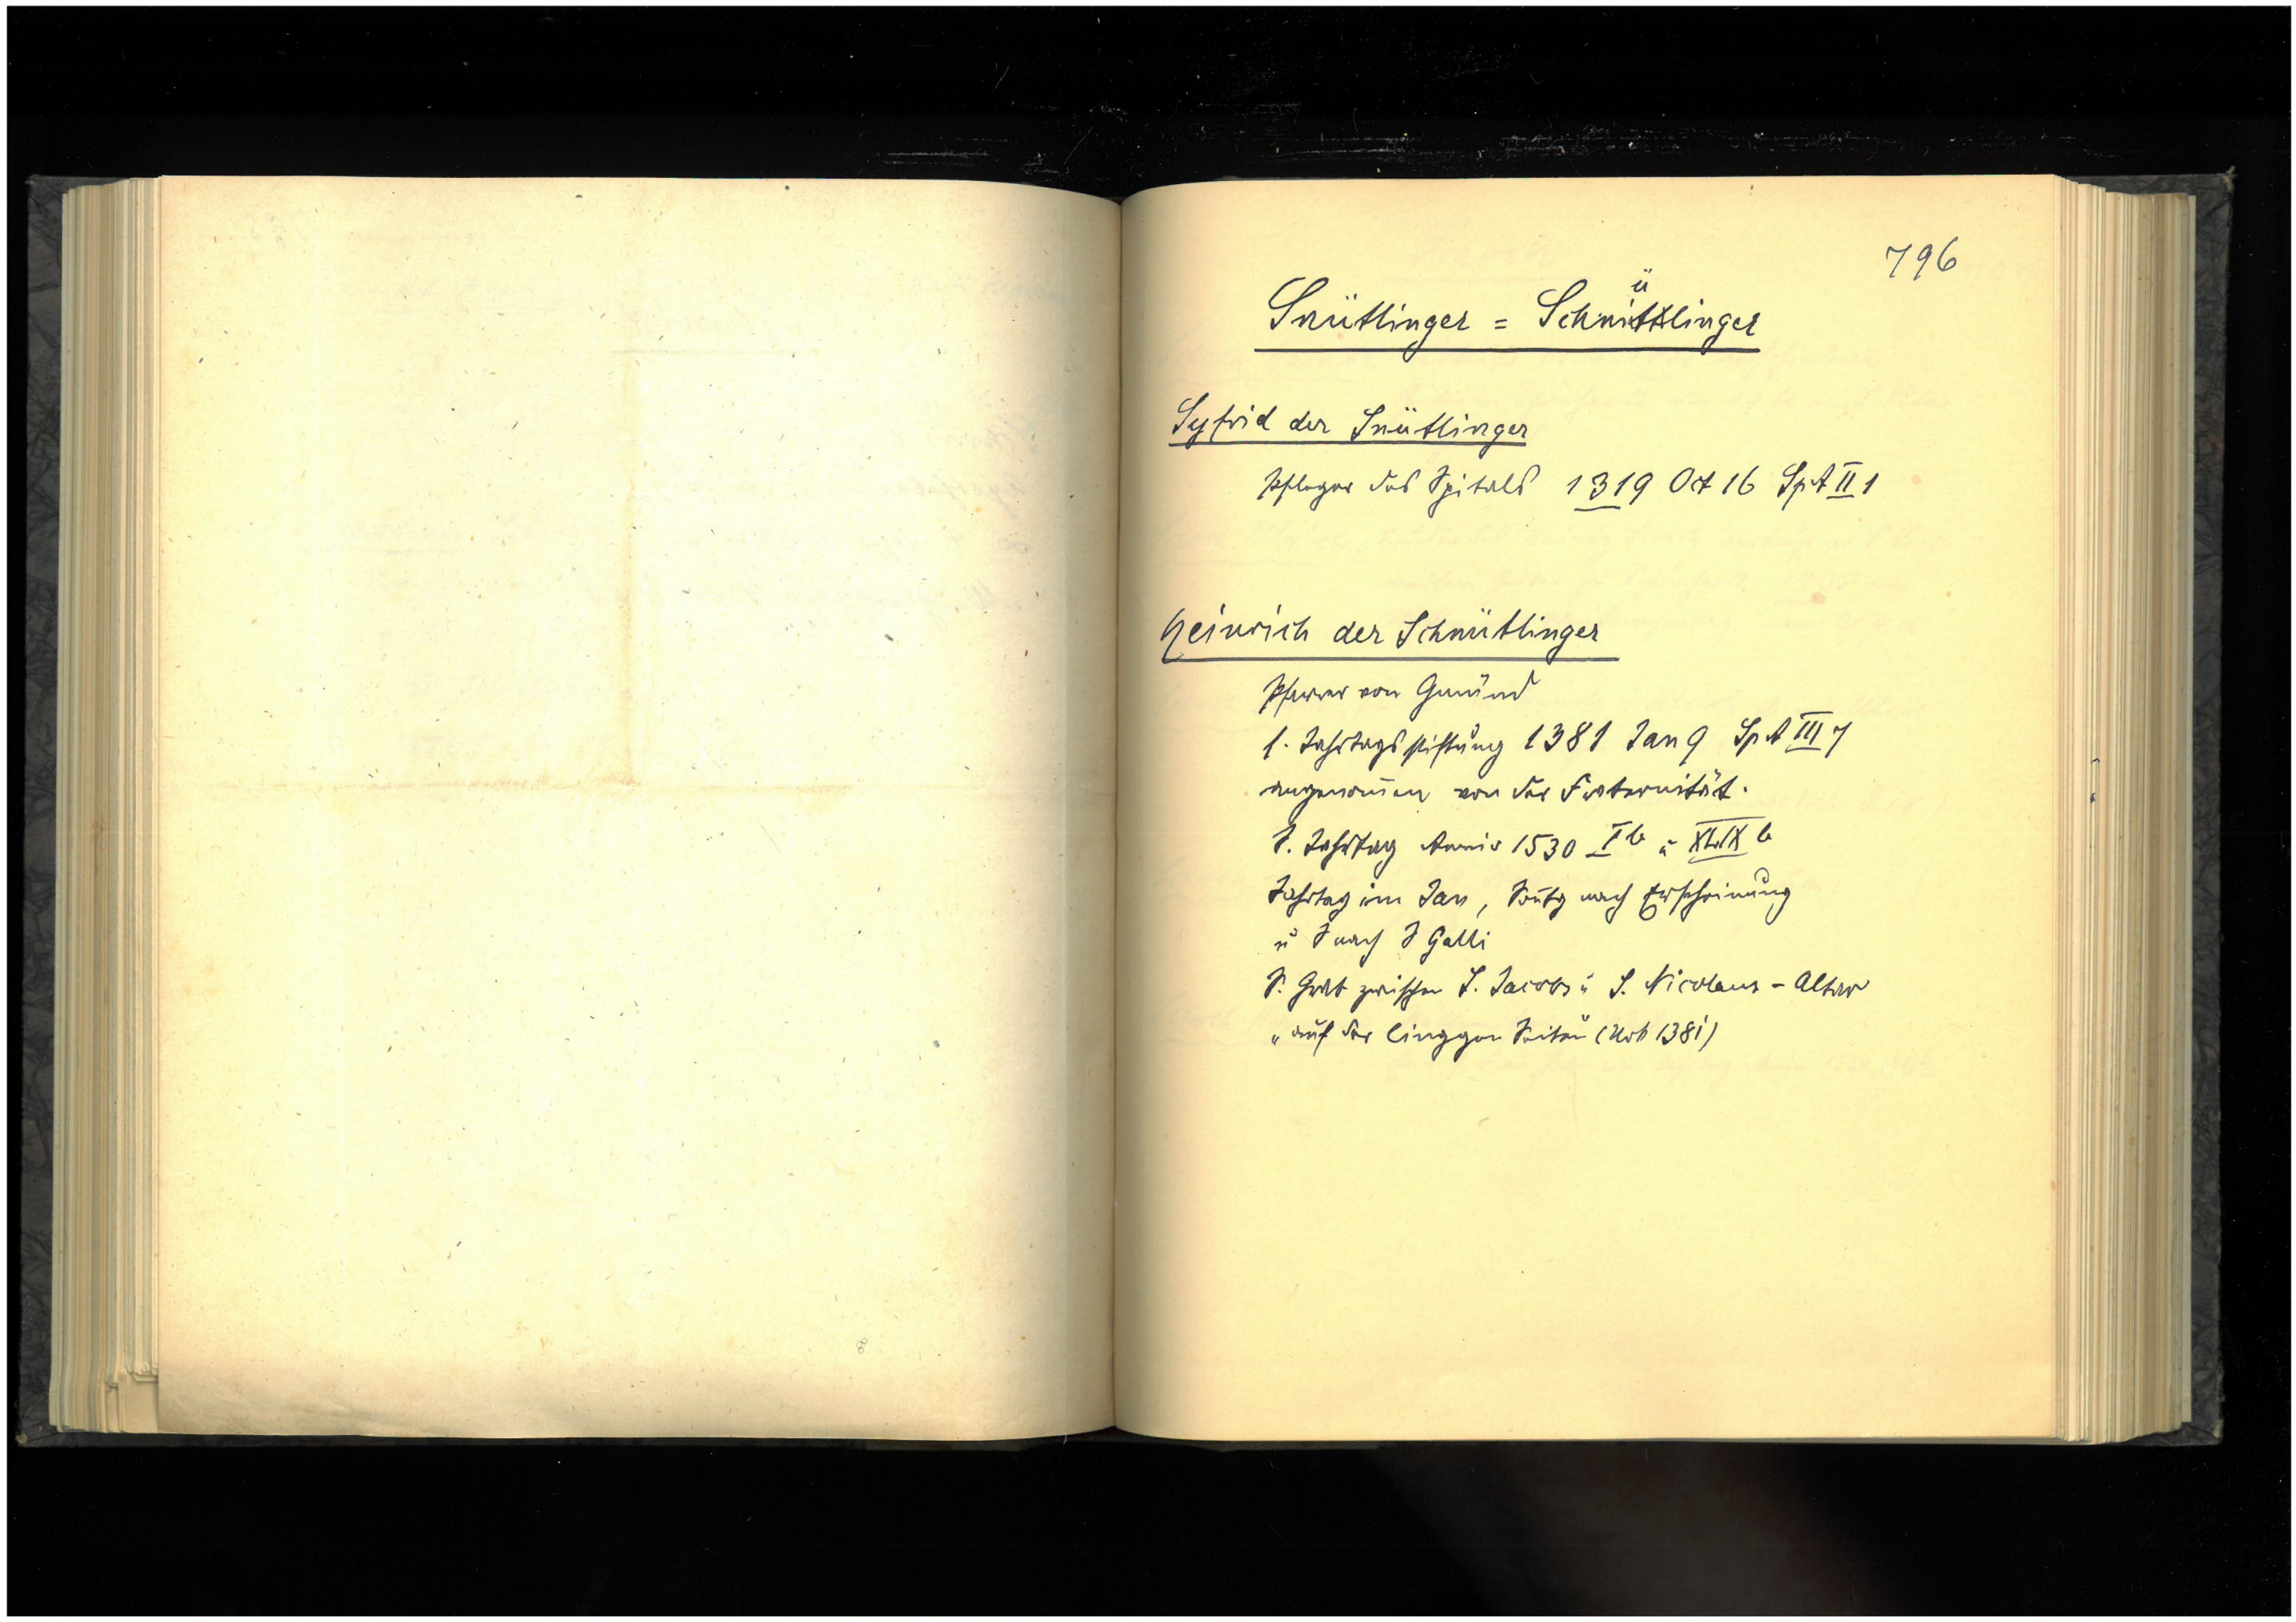 796
Snütlinger = Schnüttlinger
Syfrid der Snütlinger
Pfleger des Spitals 1319 Oct 16 SpA II 1
Heinrich der Schnütlinger
Pfarrer von Gmünd
s. Jahrtagsstiftung 1381 Jan 9 SpA III 7
angenom̄en von der Fraternität.
S. Jahrtag Anniv 1530 I b u XLIX b
Jahrtag im Jan, Sontg nach Erscheinung
u S nach S Galli
S. Grab zwischen S. Jacobs u S. Nicolaus-Altar
"auf der linggen Seiten (Urk 1381)